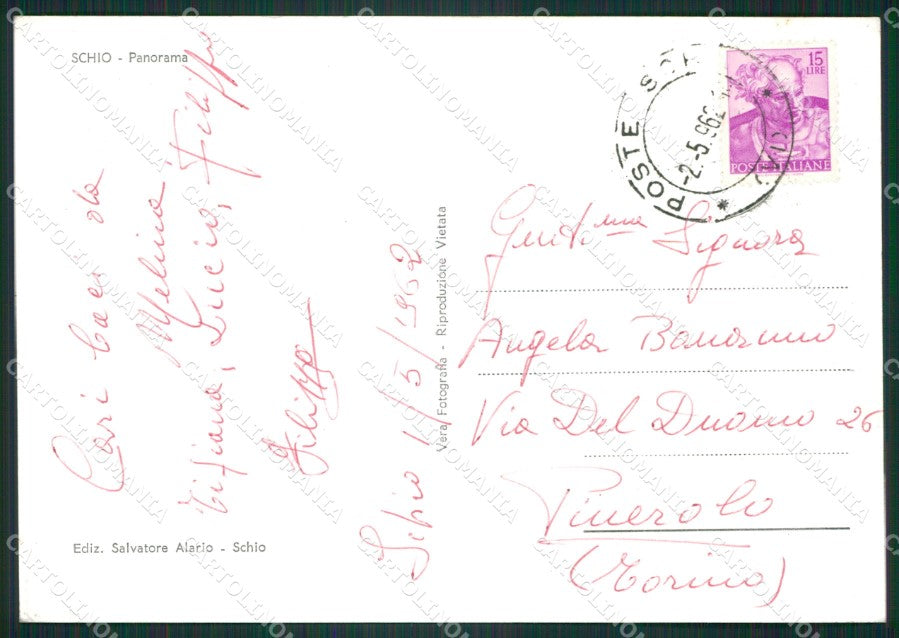 SCHIO - Panorama
Cari baci da
Melina
Tiziana, Lucia, Filippo
Filippo
Schio 1/5/1962
Ediz. Salvatore Alario - Schio
Vera Fotografia - Riproduzione Vietata
POSTE
-2.-5.962
15
LIRE
POSTE ITALIANE
Gent.ma Signora
Angela
Via Del Duomo 26
Pinerolo
(Torino)
CARTOLINOMANIA